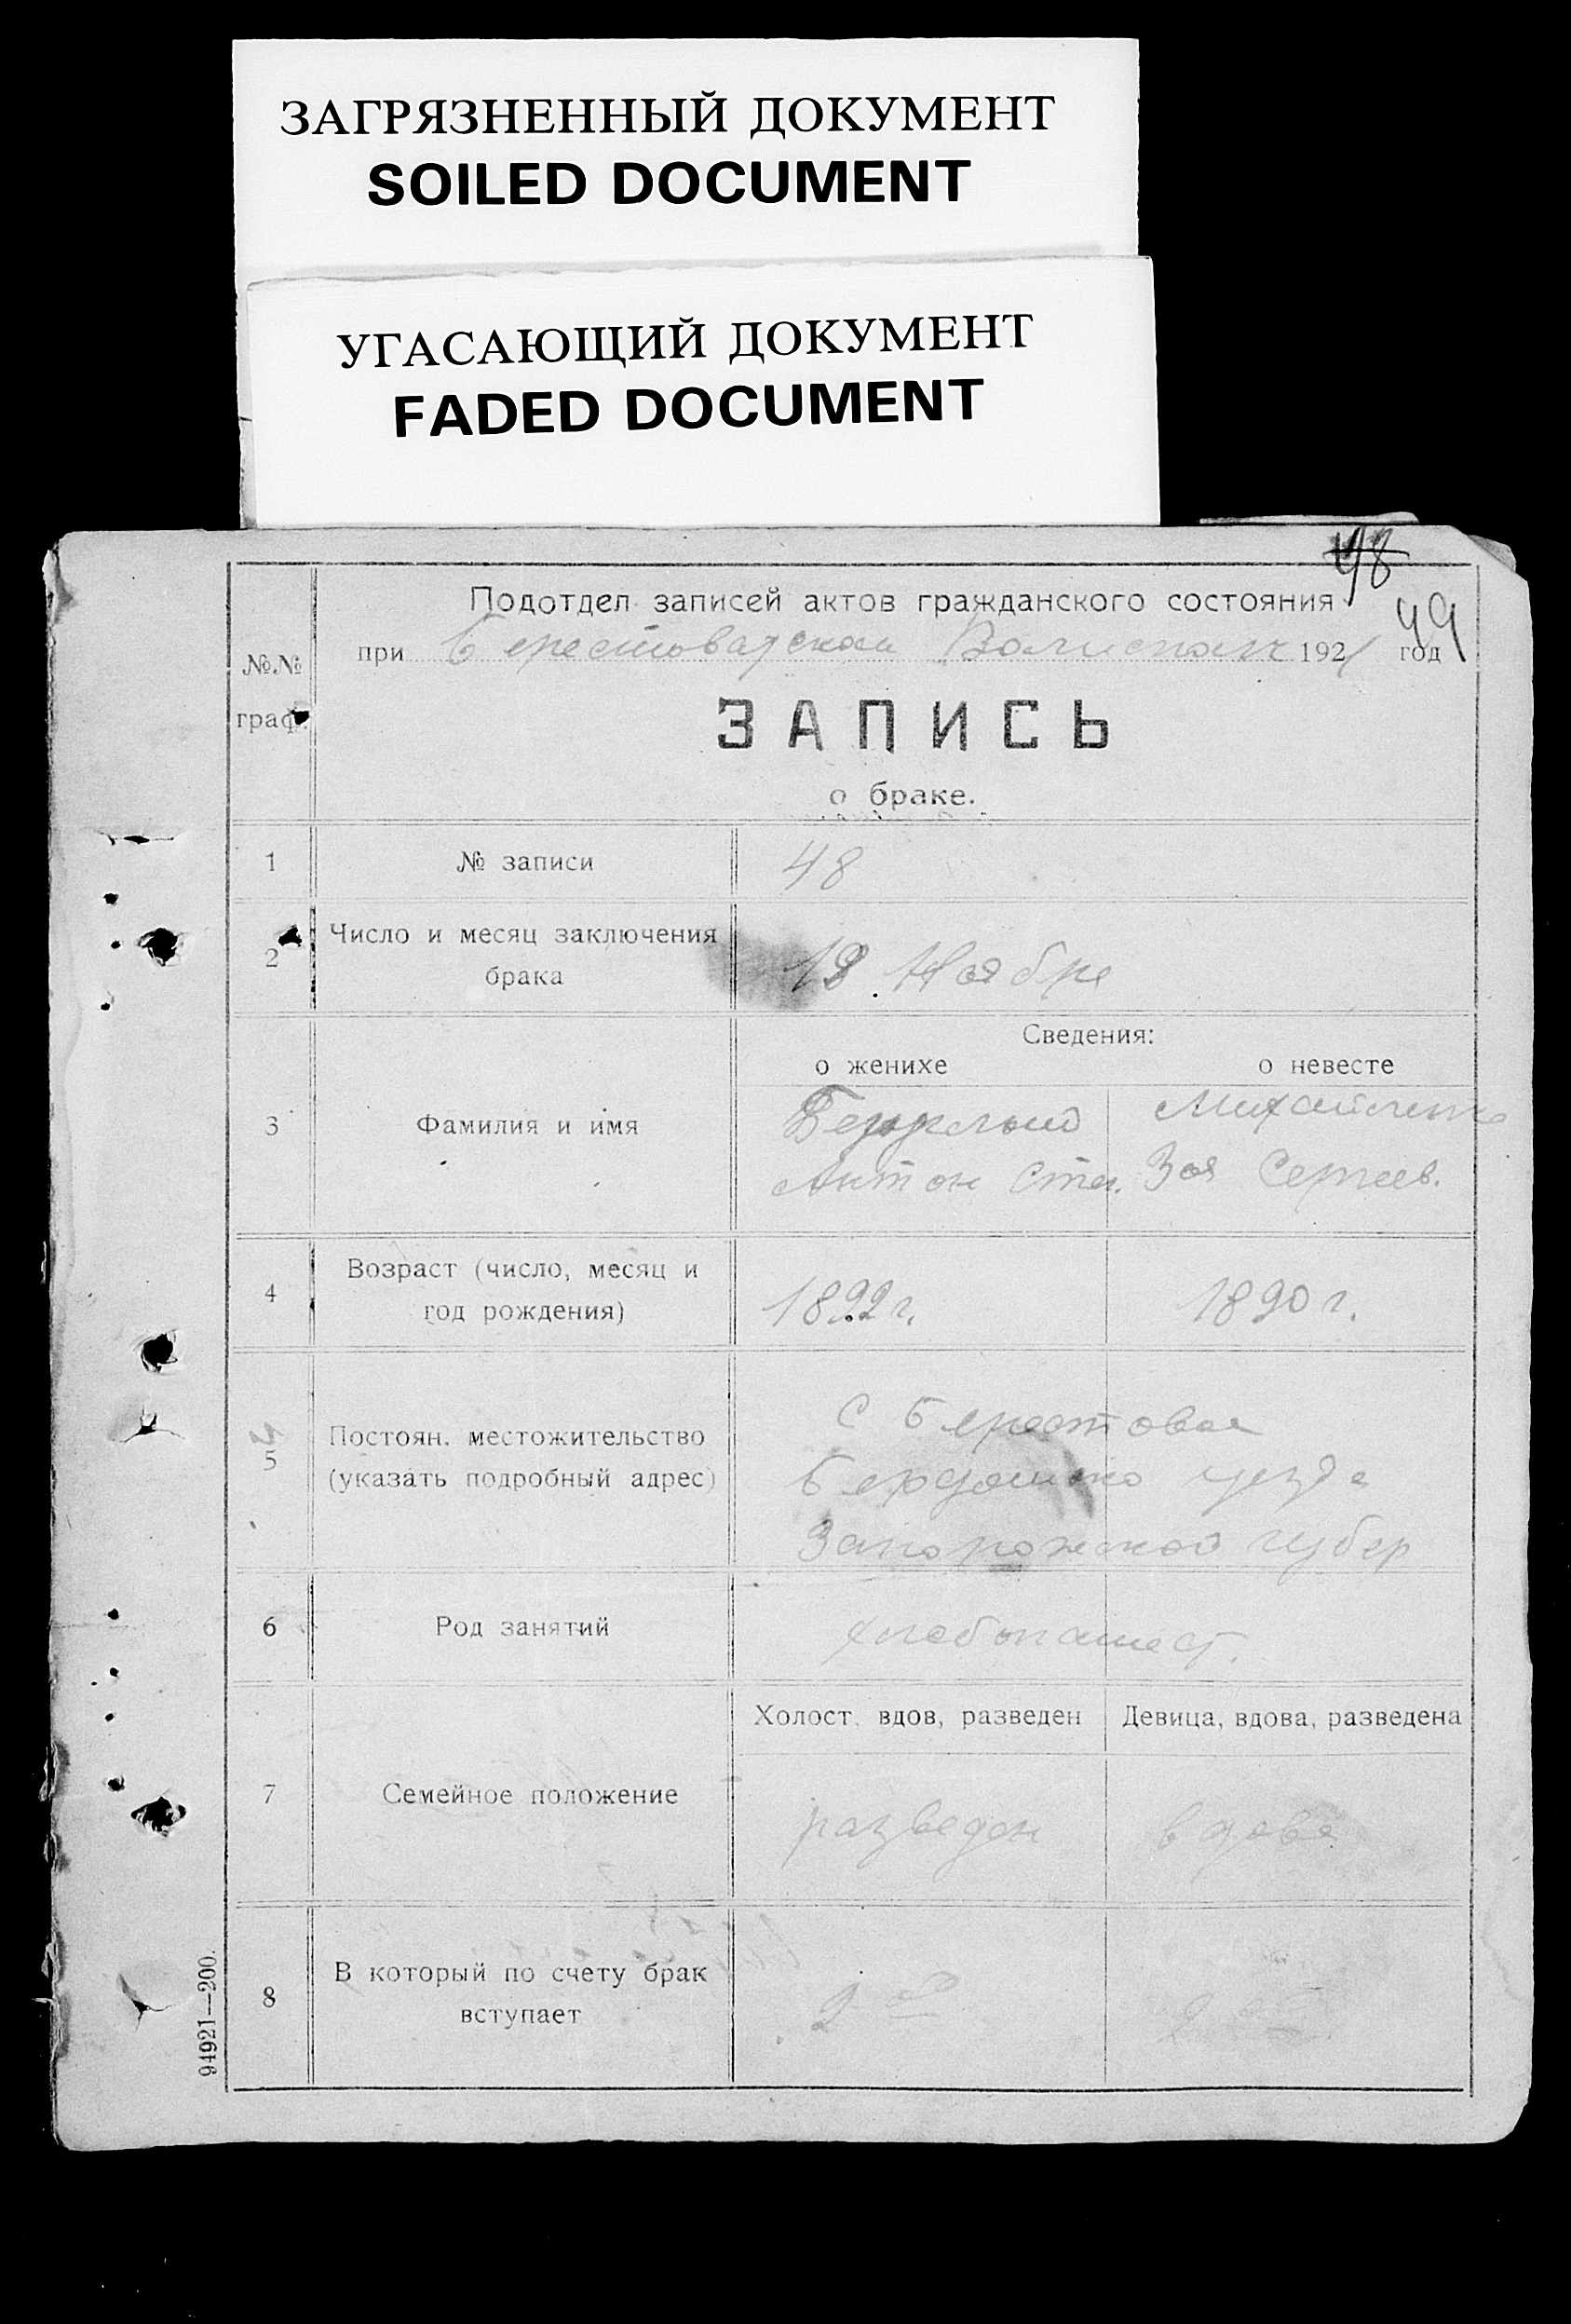 ЗАГРЯЗНЕННЫЙ ДОКУМЕНТ
SOILED DOCUMENT
УГАСАЮЩИЙ ДОКУМЕНТ
FADED DOCUMENT
48
49
№№ граф.
Подотдел записей актов гражданского состояния
при 192 год
ЗАПИСЬ
о браке.
1 № записи 48
2 Число и месяц заключения
брака
Ноября
Сведения:
о женихе о невесте
3 Фамилия и имя
Антон Степ. Зоя Сергеев.
4 Возраст (число, месяц и
год рождения)
1892 г. 1890 г.
5 Постоян. местожительство
(указать подробный адрес)
с Берестовая
уезда
Запорожской губер
6 Род занятий хлебопашест.
7 Семейное положение
Холост, вдов, разведен Девица, вдова, разведена
разведен вдова
8 В который по счету брак
вступает
2
94921—200.